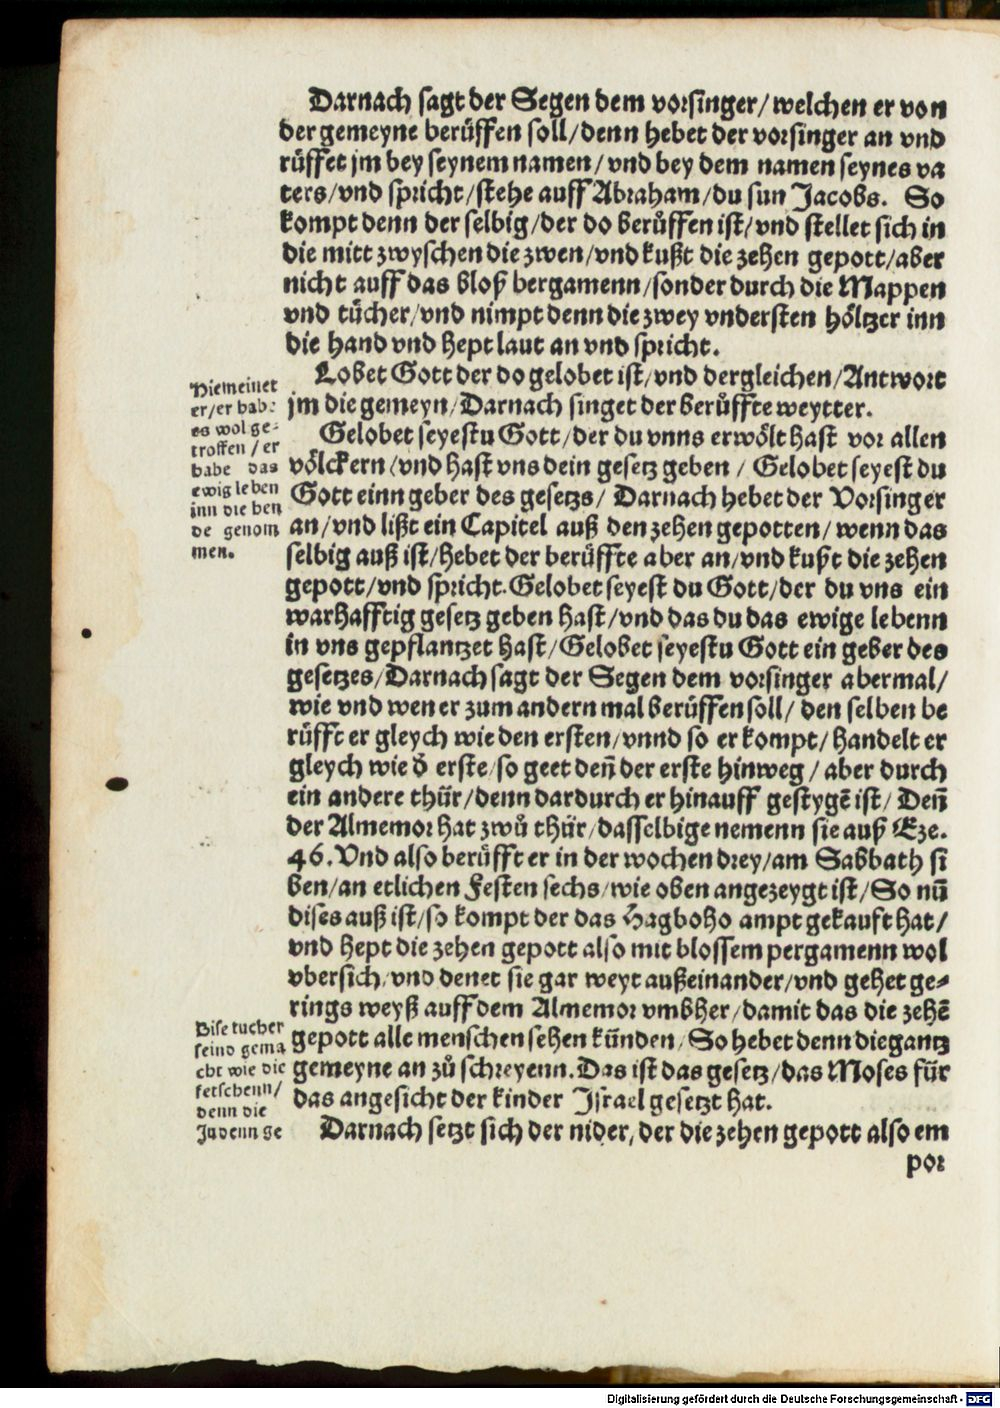 Darnach sagt der Segen dem vorsinger/welchen er von
der gemeyne berůffen soll/denn hebet der vorsinger an vnd
růffet jm bey seynem namen/vnd bey dem namen seynes va
ters/vnd spricht/stehe auff Abraham/du sun Jacobs. So
kompt denn der selbig/der do berůffen ist/vnd stellet sich in
die mitt zwyschen die zwen/vnd kußt die zehen gepott/aber
nicht auff das bloß bergamenn/sonder durch die Mappen
vnd tücher/vnd nimpt denn die zwey vndersten höltzer inn
die hand vnd hept laut an vnd spricht.
Lobet Gott der do gelobet ist/vnd dergleichen/Antwort
jm die gemeyn/Darnach singet der berůffte weytter.
Gelobet seyestu Gott/der du vnns erwölt hast vor allen
völckern/vnd hast vns dein gesetz geben / Gelobet seyest du
Gott einn geber des gesetzs/ Darnach hebet der Vorsinger
an/vnd lißt ein Capitel auß den zehen gepotten/wenn das
selbig auß ist/hebet der berůffte aber an/vnd kußt die zehen
gepott/vnd spricht. Gelobet seyest du Gott/der du vns ein
warhafftig gesetz geben hast/vnd das du das ewige lebenn
in vns gepflantzet hast/Gelobet seyestu Gott ein geber des
gesetzes/Darnach sagt der Segen dem vorsinger abermal/
wie vnd wen er zum andern mal berůffen soll/ den selben be
růfft er gleych wie den ersten/vnnd so er kompt/handelt er
gleych wie d̕ erste/so geet deñ der erste hinweg/aber durch
ein andere thür/denn dardurch er hinauff gestygẽ ist/ Deñ
der Almemor hat zwů thür/dasselbige nemenn sie auß Eze.
46. Vnd also berůfft er in der wochen drey/am Sabbath si
ben/an etlichen Festen sechs/wie oben angezeygt ist/So nũ
dises auß ist/so kompt der das Hagboho ampt gekauft hat/
vnd hept die zehen gepott also mit blossem pergamenn wol
vbersich/vnd denet sie gar weyt außeinander/vnd gehet ge-
rings weyß auff dem Almemor vmbher/damit das die zehẽ
gepott alle menschen sehen künden/So hebet denn die gantz
gemeyne an zů schreyenn. Das ist das gesetz/das Moses für
das angesicht der kinder Jsrael gesetzt hat.
Darnach setzt sich der nider/der die zehen gepott also em
por
Hie meinet
er/er hab:
es wol ge-
troffen / er
habe das
ewig leben
inn die hen
de genom
men.
Dise tucher
seind gema
cht wie die
fetschenn/
denn die
Judenn ge
Digitalisierung gefördert durch die Deutsche Forschungsgemeinschaft - DFG